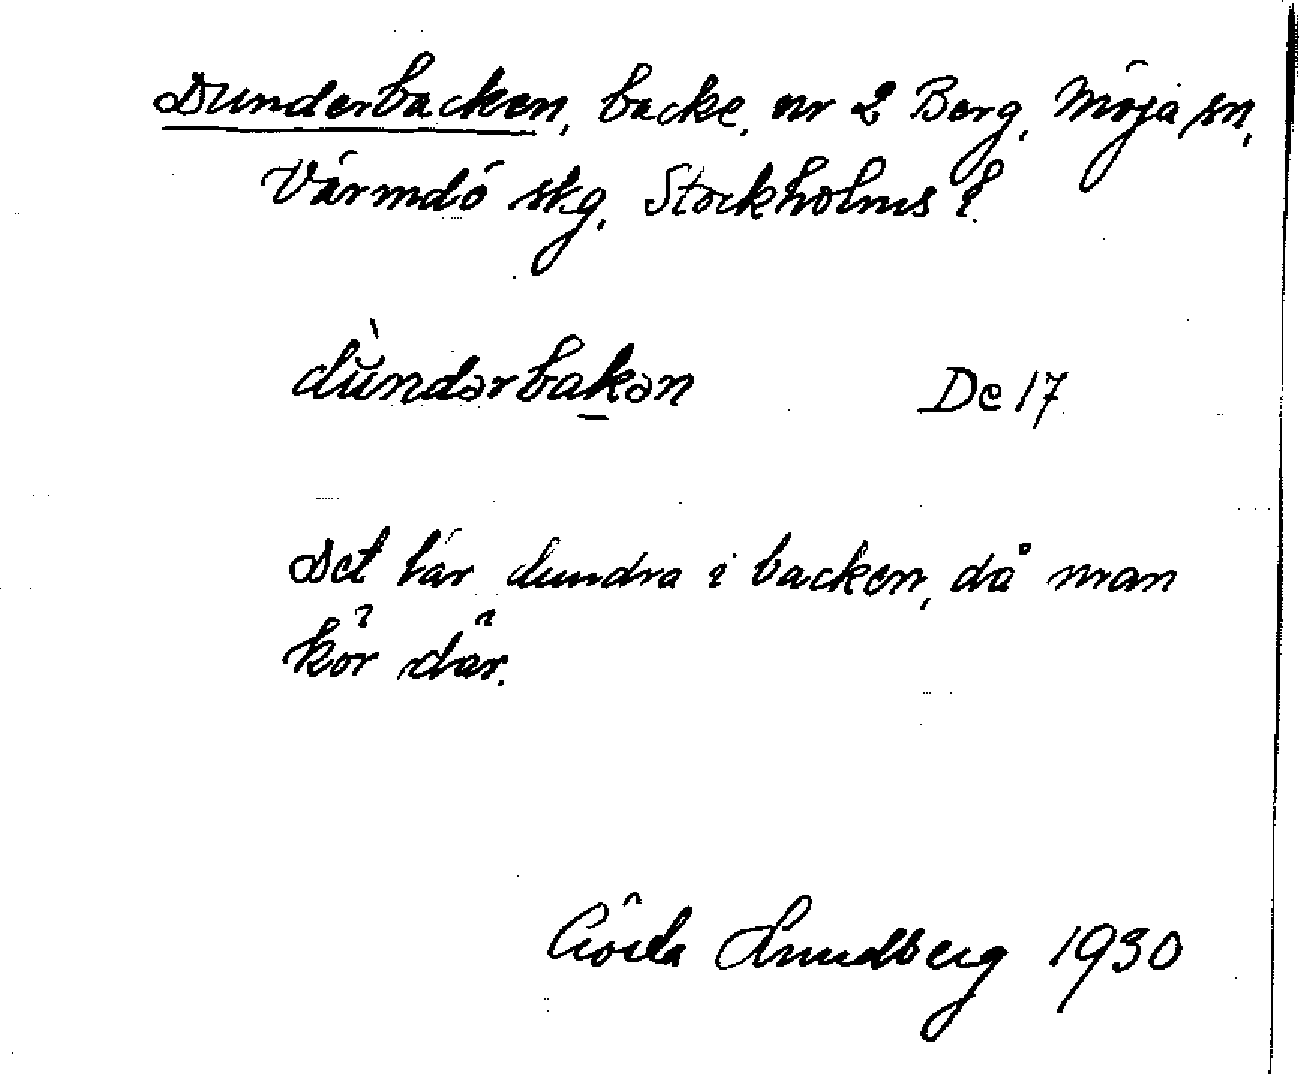 Dunderbacken, backe, nr 2 Berg, Möja sn,
Värmdö skg, Stockholms l.
dùndərbakən De 17
Det lär dundra i backen, då man
kör där.
Gösta Lundberg 1930